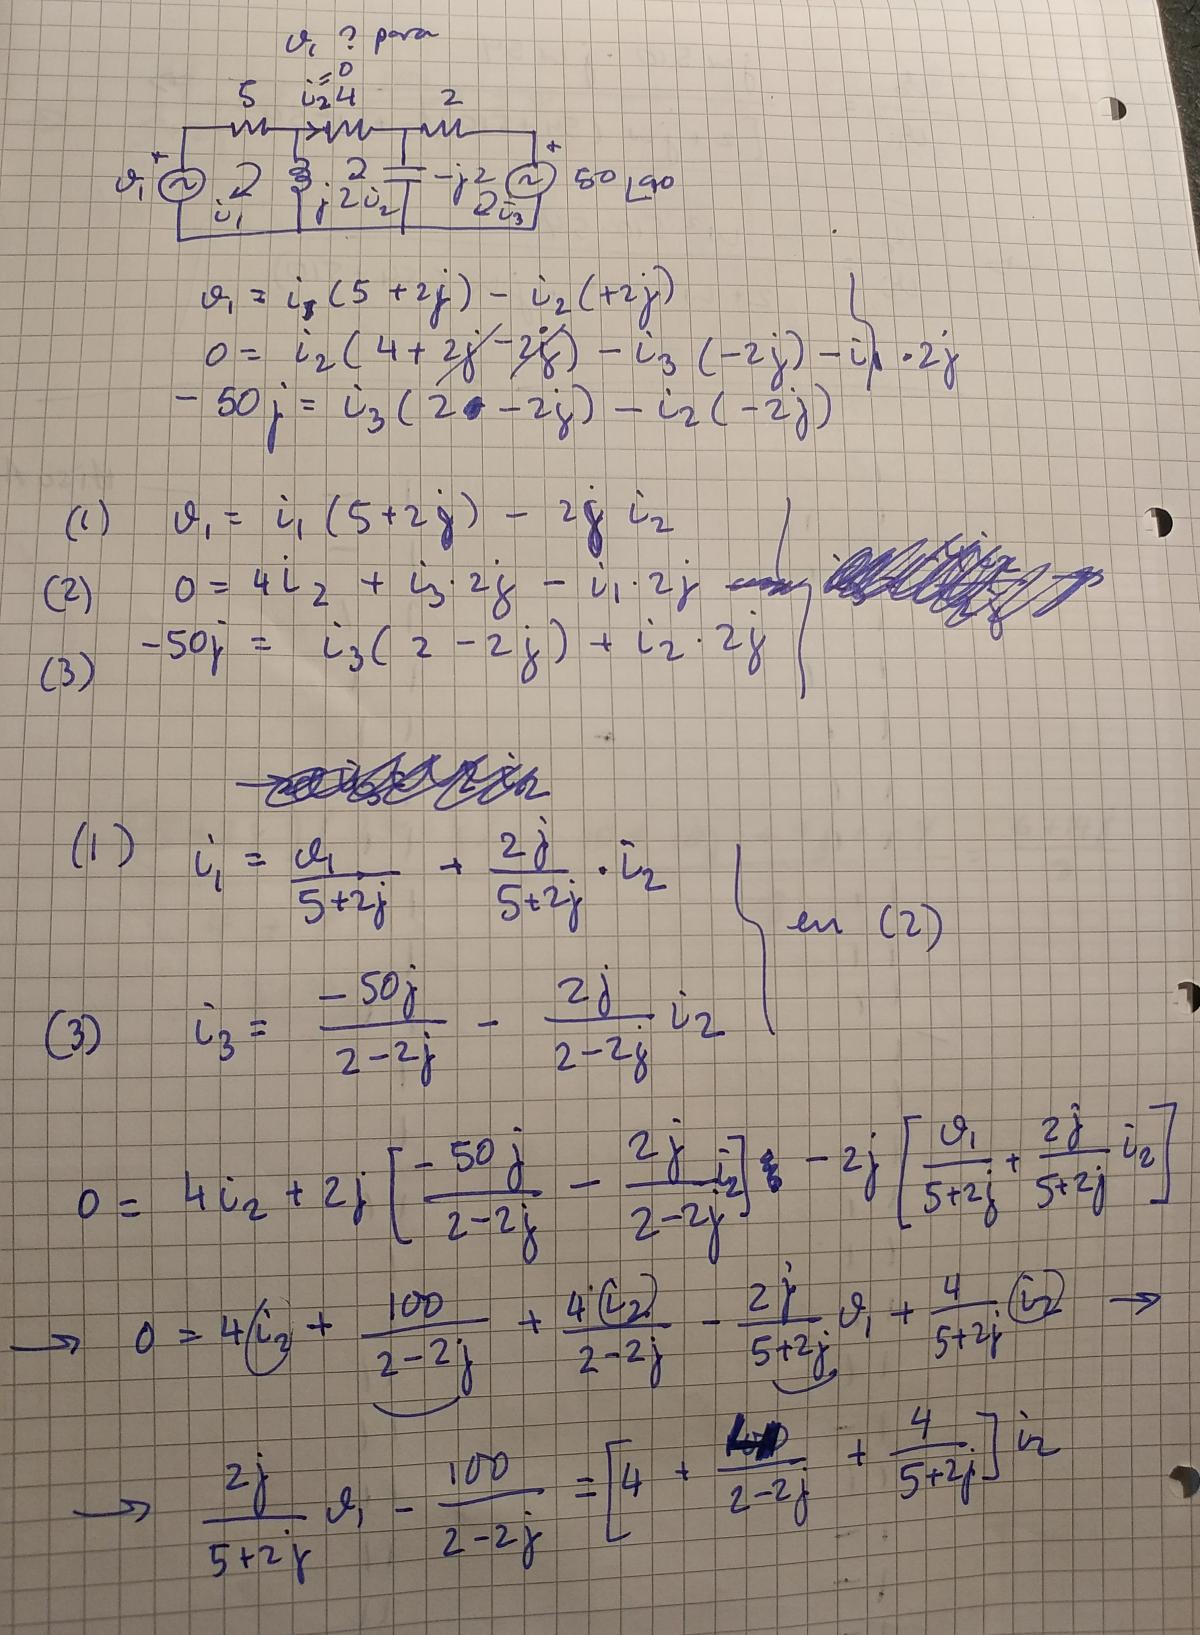 v₁ ? para
i₂=0
5 4 2
v₁ + i₁ j2 i₂ -j2 i₃ + 50∠90
v₁ = i₁(5+2j) - i₂(+2j)
0 = i₂(4+2j-2j) - i₃(-2j) - i₁·2j
-50j = i₃(2-2j) - i₂(-2j)
(1) v₁ = i₁(5+2j) - 2j i₂
(2) 0 = 4i₂ + i₃·2j - i₁·2j
(3) -50j = i₃(2-2j) + i₂·2j
(1) i₁ = v₁/(5+2j) + 2j/(5+2j)·i₂
en (2)
(3) i₃ = -50j/(2-2j) - 2j/(2-2j) i₂
0 = 4i₂ + 2j[-50j/(2-2j) - 2j/(2-2j) i₂] - 2j[v₁/(5+2j) + 2j/(5+2j) i₂]
→ 0 = 4i₂ + 100/(2-2j) + 4i₂/(2-2j) - 2j/(5+2j) v₁ + 4/(5+2j) i₂ →
→ 2j/(5+2j) v₁ - 100/(2-2j) = [4 + /(2-2j) + 4/(5+2j)] i₂